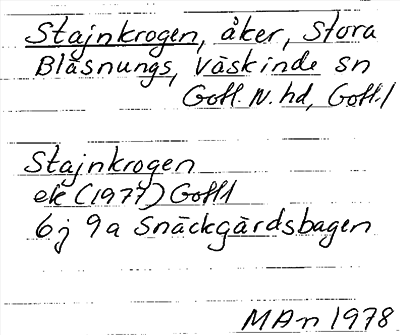 Stajnkrogen, åker, Stora
Blåsnungs, Väskinde sn
Gotl. N. hd, Gotl.l
Stajnkrogen
ek (1977) Gotll
6j 9a Snäckgärdsbagen
MAn 1978